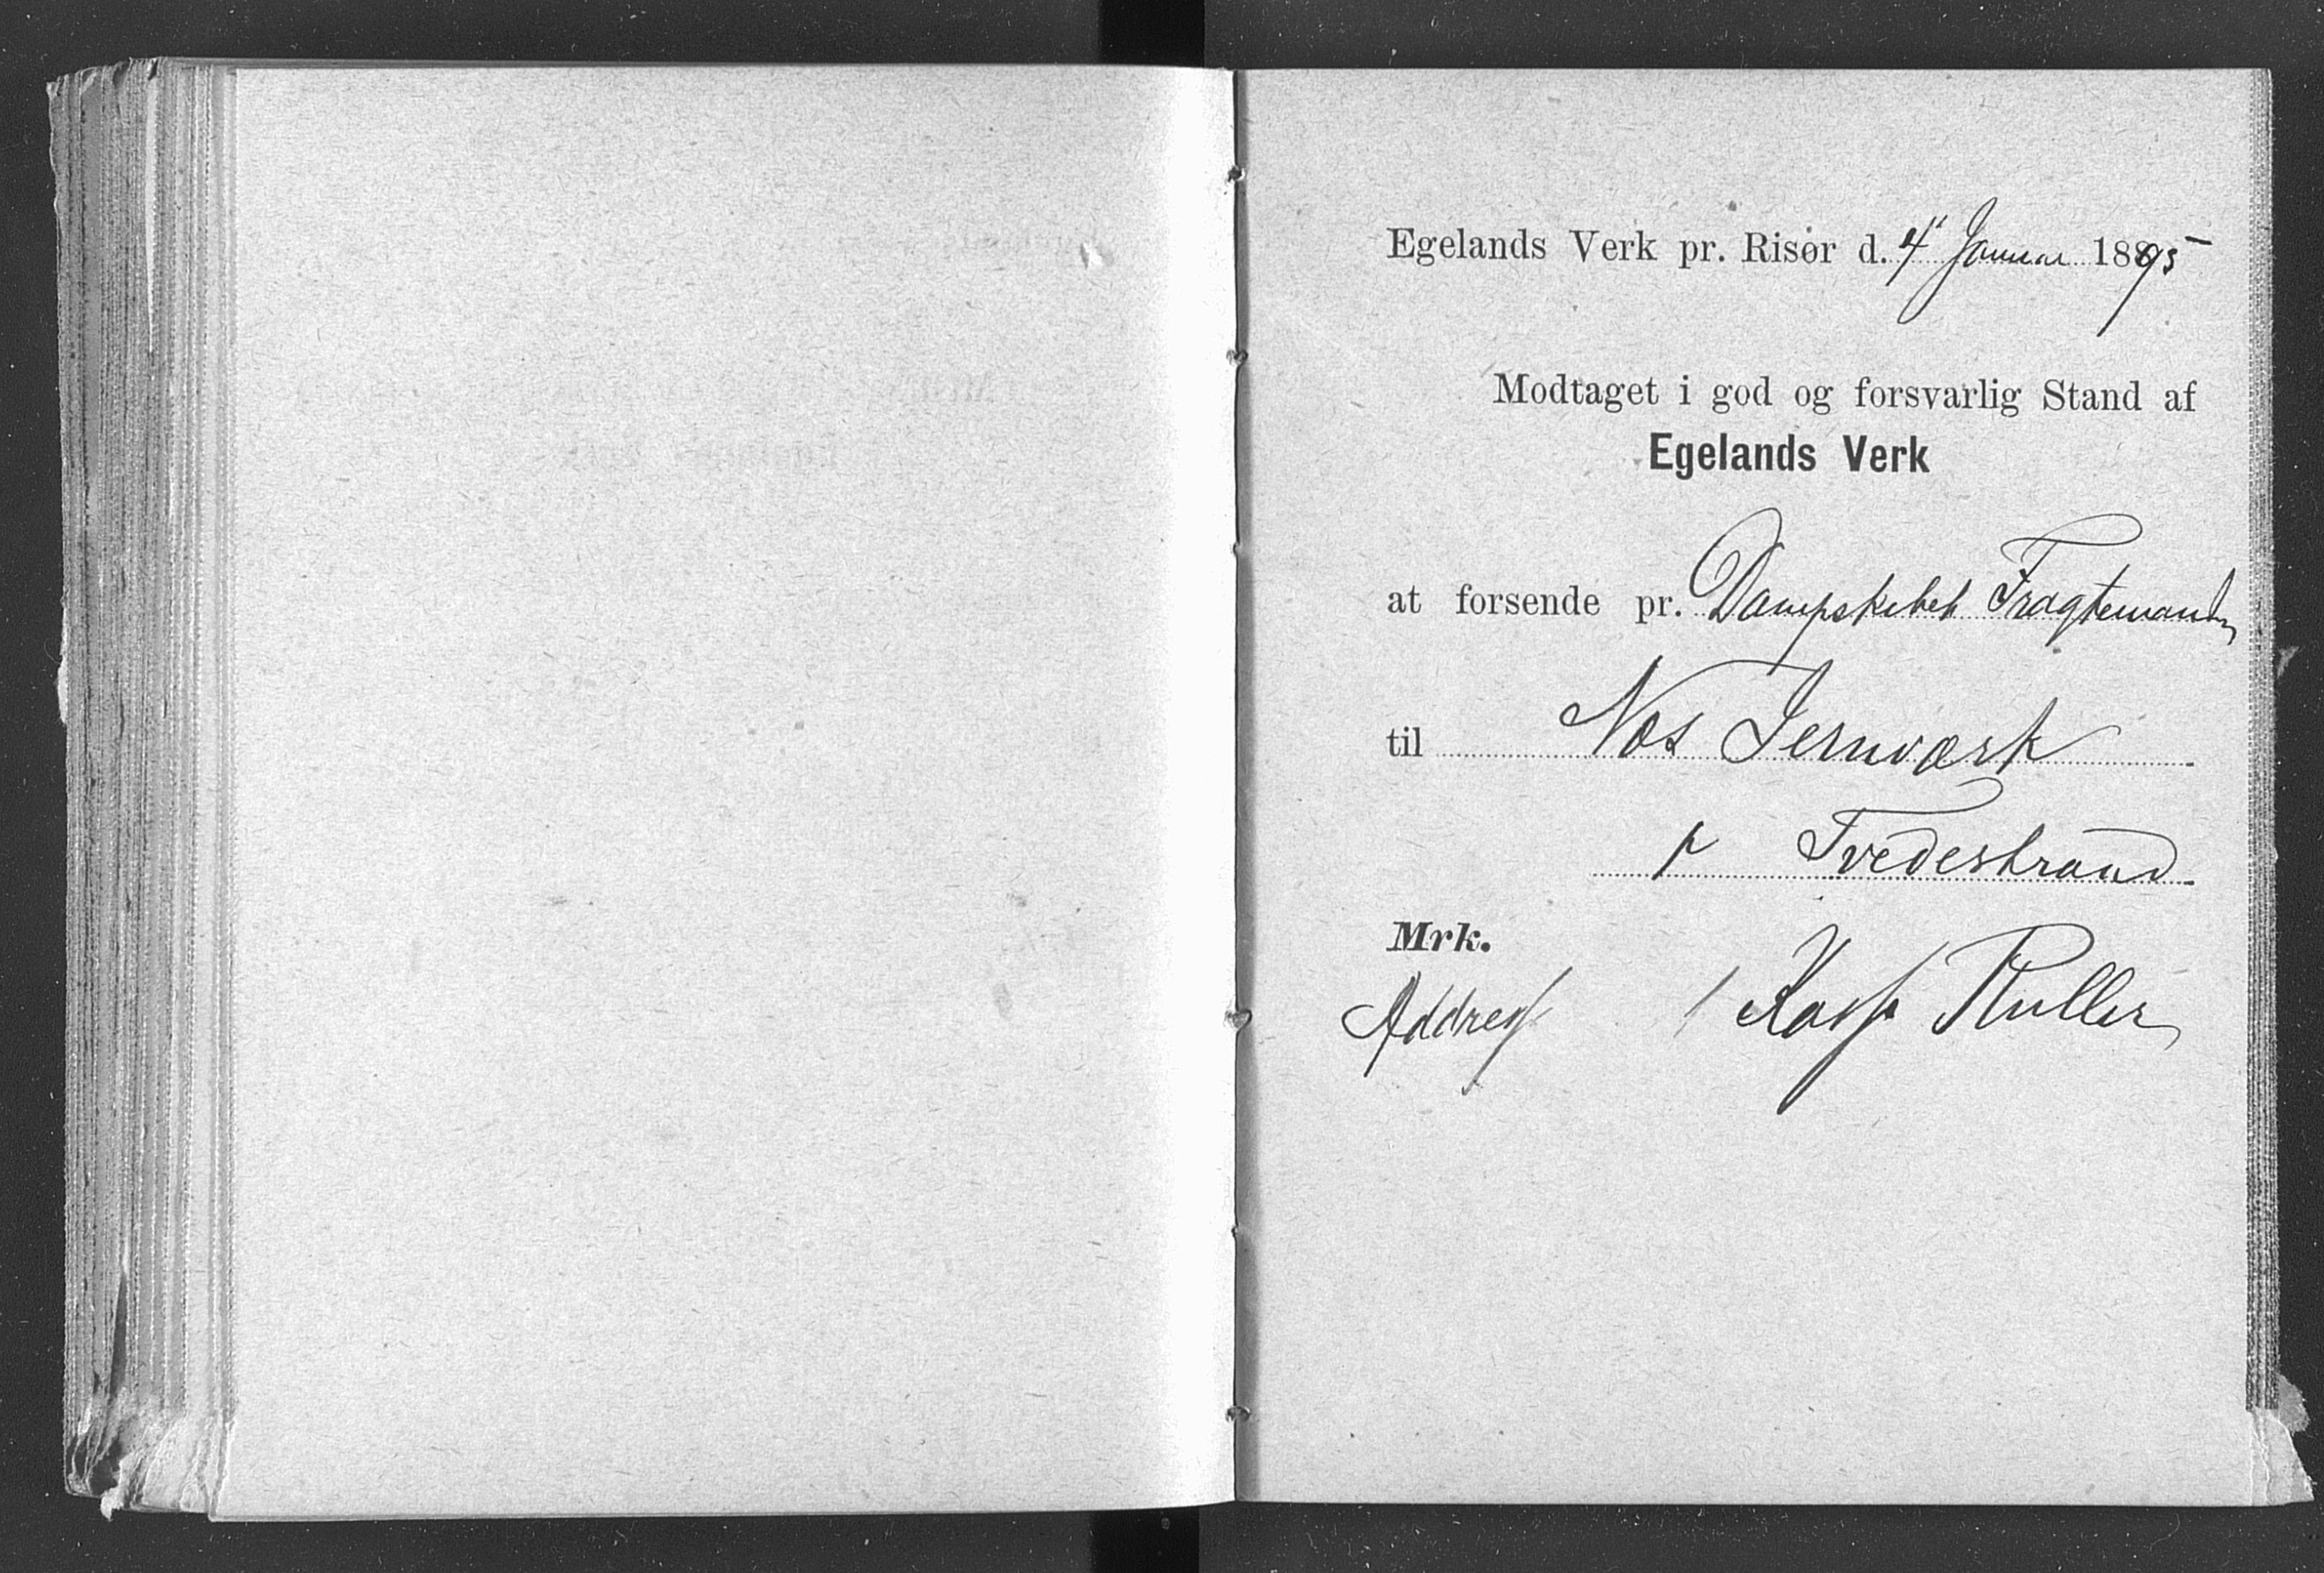 Egelands Verk pr. Risør d. 4' Januar 1895
Modtaget i god og forsvarlig Stand af
Egelands Verk
at forsende pr. Dampskibet Fragtemanden
til Næs Jernværk
pr Tvedestrand
Mrk.
Address 1 Kasse Ruller